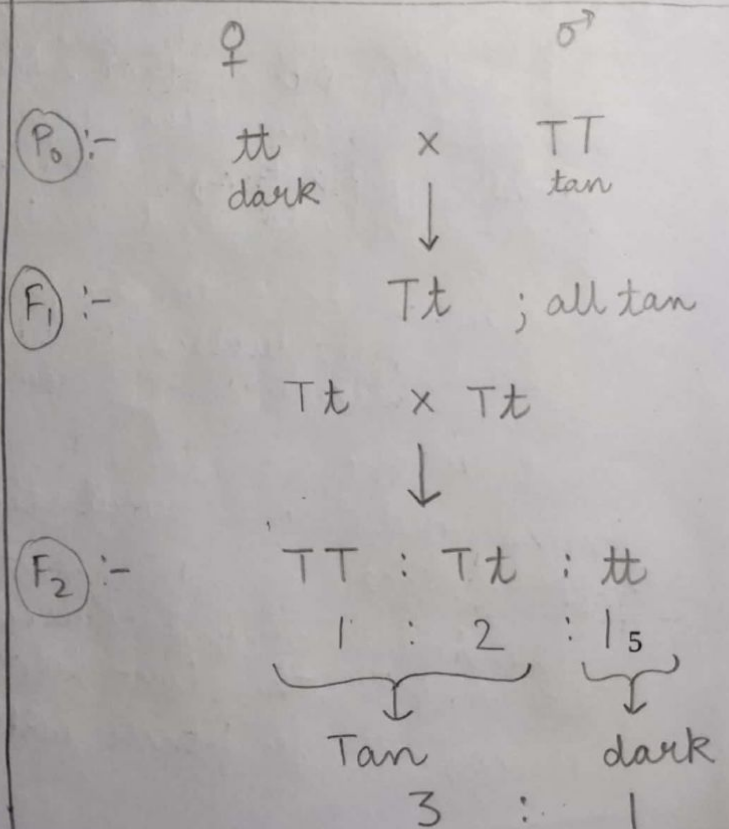 ♀ ♂
P₀ :- tt x TT
dark tan
↓
F₁ :- Tt ; all tan
Tt x Tt
↓
F₂ :- TT : Tt : tt
1 : 2 : 1 5
↓ ↓
Tan dark
3 : 1